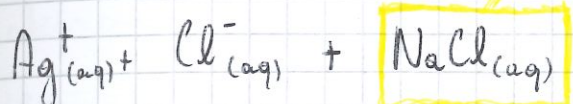 Ag⁺(aq) + Cl⁻(aq) + NaCl(aq)